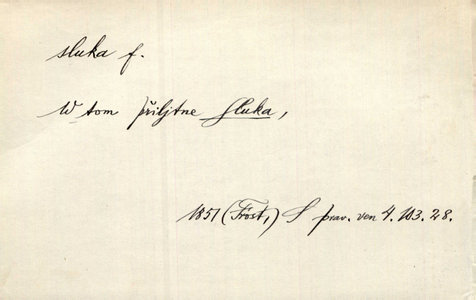 sluka f.
W tom přiljtne sluka,
1851 (Tröst,) S prav. ven 4. 103. 28.